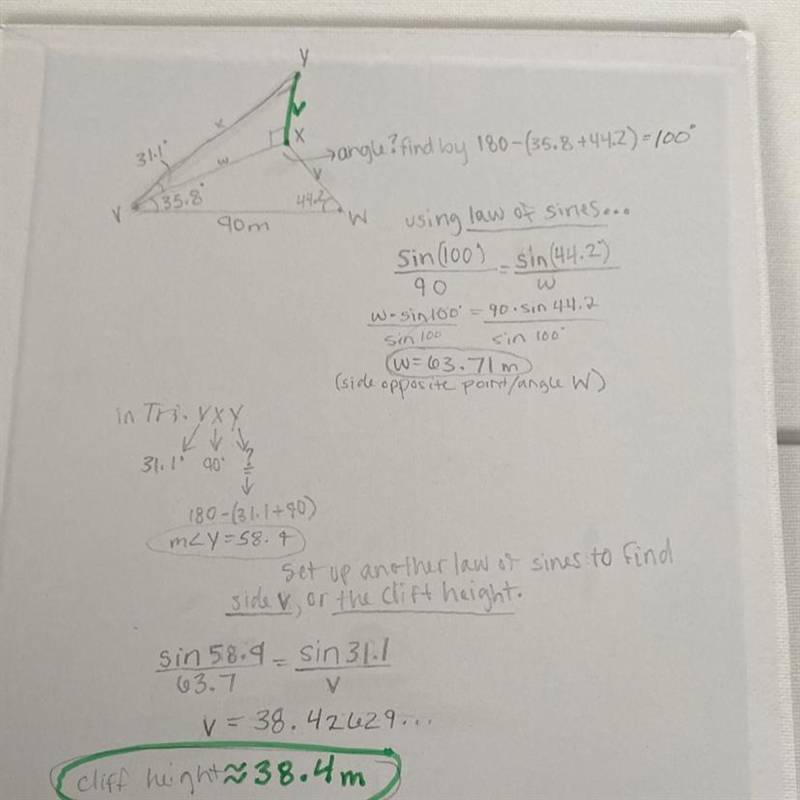 Y
x
V
X
31.1°
w
→angle? find by 180-(35.8+44.2)=100°
V
35.8°
44.2
V
W
90m
using law of sines...
sin(100)/90 = sin(44.2°)/w
w·sin100°/sin 100 = 90·sin 44.2/sin 100°
w=63.71m
(side opposite point/angle W)
in Tri. VXY
31.1° 90° ?
180-(31.1+90)
m∠Y=58.9
Set up another law of sines to find
side v, or the cliff height.
sin 58.9/63.7 = sin 31.1/v
v = 38.42629...
cliff height≈38.4m